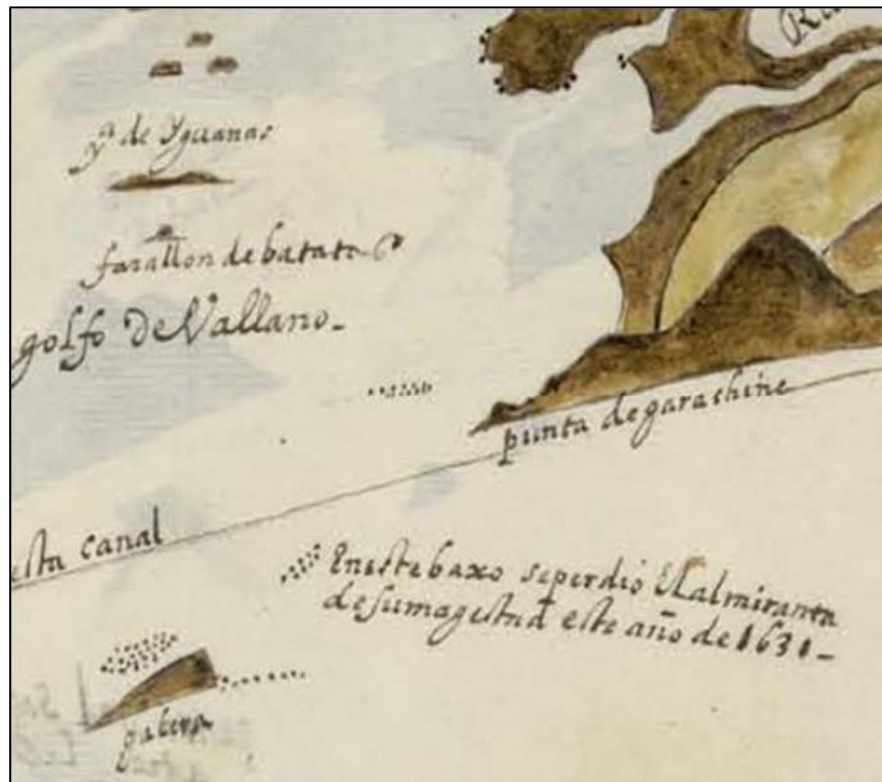 Rio
yª de Yguanas
farallon de batata
golfo de Vallano_
punta de garachine
esta canal
En este baxo se perdio El almiranta
de su magestad este año de 1631_
galera